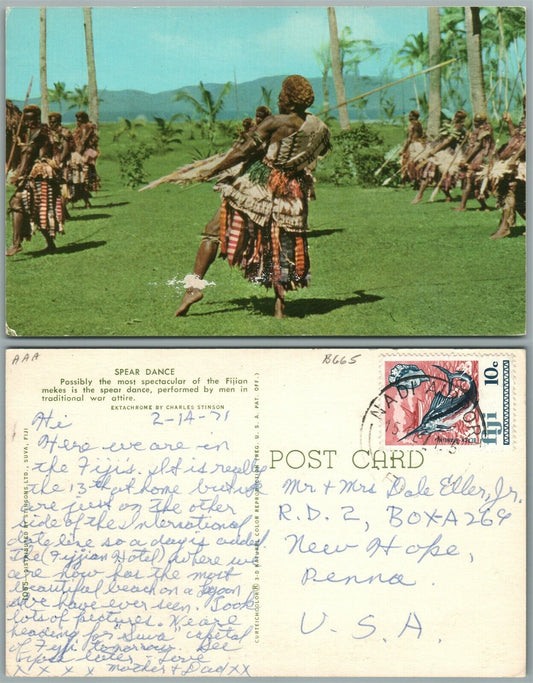 AAA
B665
SPEAR DANCE
Possibly the most spectacular of the Fijian
mekes is the spear dance, performed by men in
traditional war attire.
EKTACHROME BY CHARLES STINSON
Hi 2-14-71
Here we are in
the Fiji's. It is really
the 13th at home but we
are just on the other
side of the International
date line so a day is added
The (Fijian Hotel) where we
are now has the most
beautiful beach on a lagoon
we have ever seen. Took
lots of pictures. We are
heading for "Suva" capital
of Fiji tomorrow. See
later - Love
X X X X Mother & Dad XX
DISTRIBUTED BY STINSONS, LTD., SUVA, FIJI
CURTEICHCOLOR® 3-D NATURAL COLOR REPRODUCTION (REG. U. S. A. PAT. OFF.)
POST CARD
NADI AIRPORT
10c
fiji
Mr. & Mrs Dale Eller, Jr.
R.D. 2, BOX-A269
New Hope,
Penna.
U.S.A.